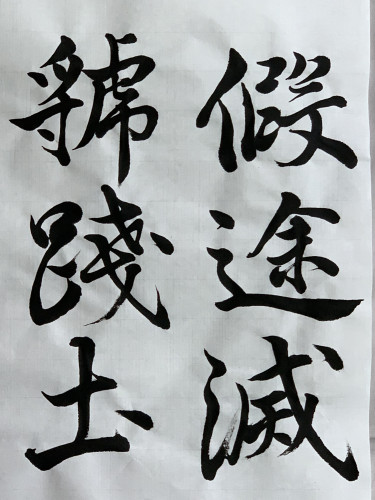 假途滅
虢踐土